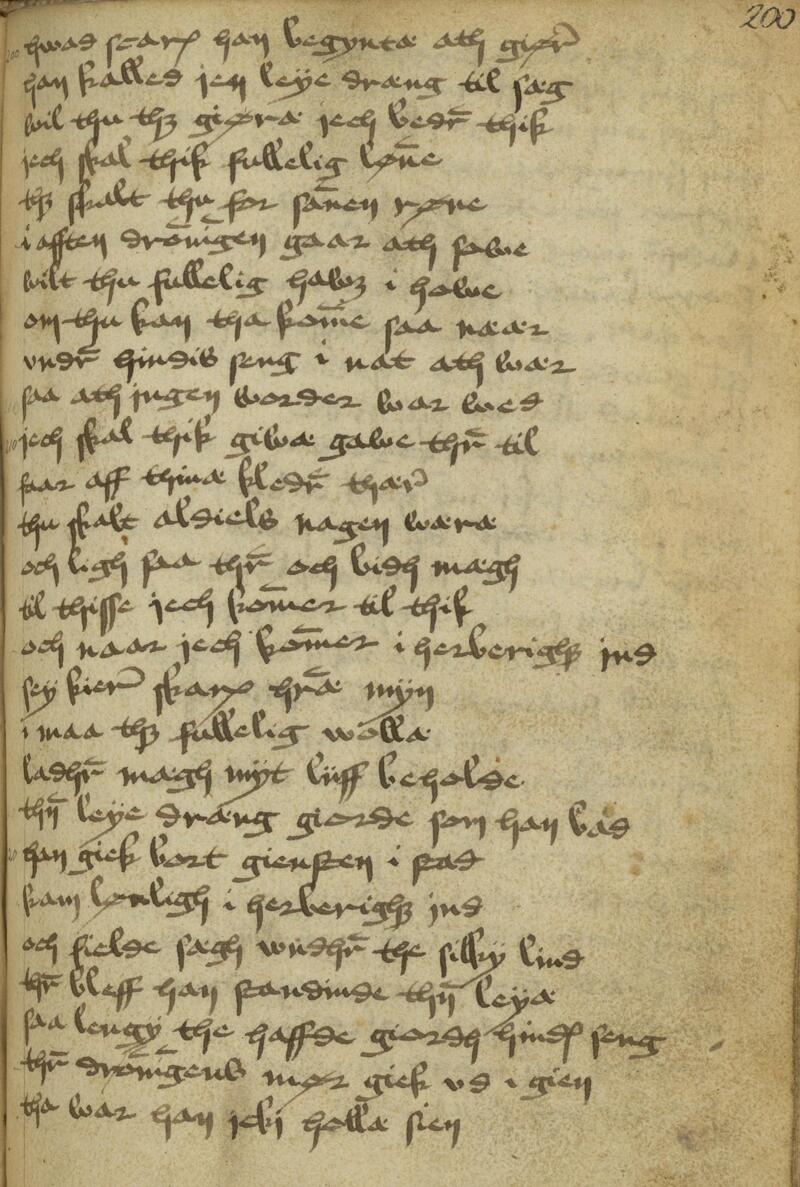 200
hwad scarp han begyntæ ath giør̄
han kalled jen leÿe dræng til sæg
wil thu thꝫ giøræ jech bedr̄ thik
jech skal thik fullelig løn̄e
thꝫ skalt thu for san̄en røne
i afften dron̄īgen gaar ath sowe
wilt thu fullelig hawꝫ i howe
om thu kan tha kom̄e saa nær
vndr̄ hindis seng i nat ath wær
saa ath jngen worder war wed
jech skal thik giwæ gawe thr̄ til
faar aff thinæ kledr̄ thær̄
thu skalt aldiels nagen wæræ
och ligh saa thr̄ och bidh mægh
til thisse jech kom̄er til thik
och naar jech kom̄er i herberighꝫ jnd
sey kier̄ skarp hr̄æ mÿn
i maa thꝫ fullelig wollæ
ladhr̄ mægh mÿt lÿff beholde
thn̄ leÿe dræng giorde som han bad
han giek bort giensten i stad
kam lønligh i herberighꝫ jnd
och fielde sægh wndhr̄ the silky lind
thr̄ bleff han standinde thn̄ leyæ
saa lengÿ the haffde giordh hindꝭ seng
thr̄ dron̄īgens mør giek vd i gien
tha war han jcki hollæ sien